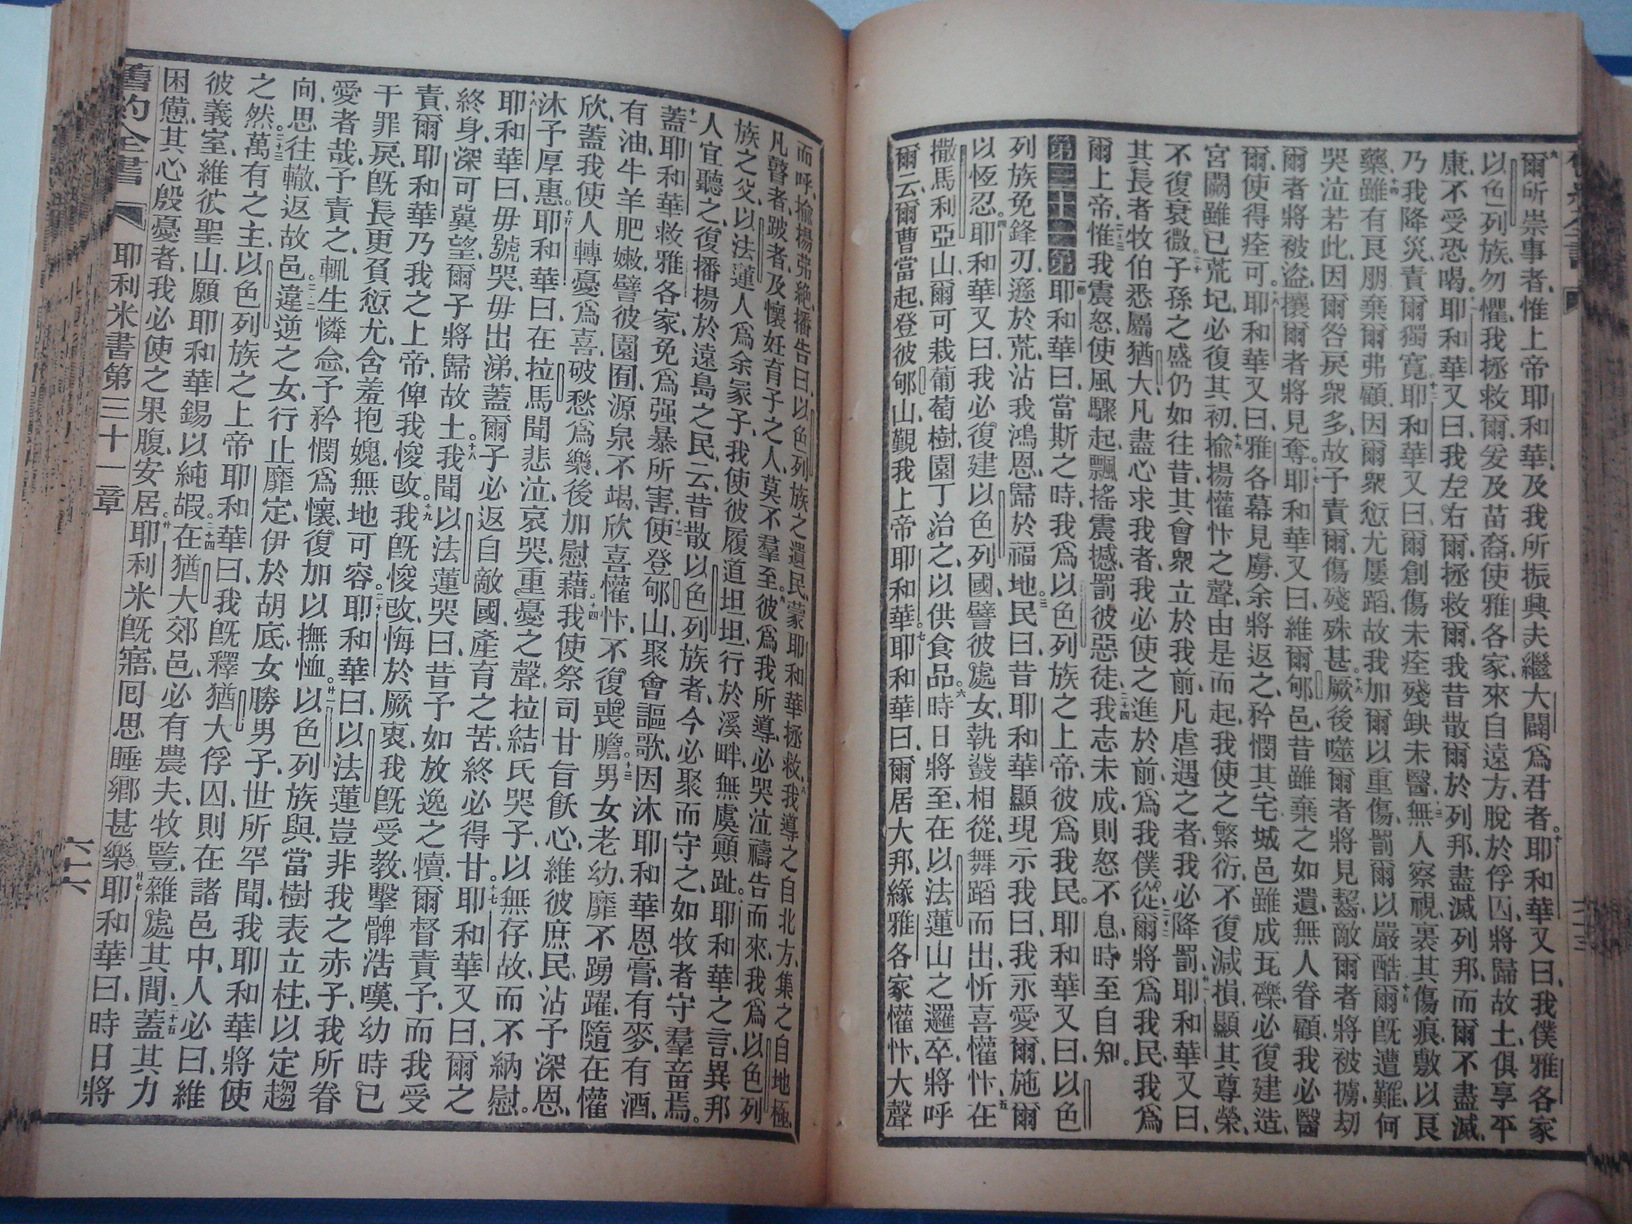 爾所崇事者、惟上帝耶和華、及我所振興、夫繼大闢爲君者。十耶和華又曰、我僕雅各家
以色列族勿懼、我拯救爾、爰及苗裔、使雅各家來自遠方、脫於俘囚、將歸故土、俱享平
康、不受恐喝。耶和華又曰、我左右爾、拯救爾、我昔散爾於列邦、盡滅列邦、而爾不盡滅、
乃我降災責爾獨寬、耶和華又曰、爾創傷未痊、殘缺未醫、無人察視、裹其傷痕、敷以良
藥、雖有良朋、棄爾弗顧、因爾衆愆尤屢蹈、故我加爾以重傷、罰爾以嚴酷、爾旣遭難、何
哭泣若此、因爾咎戾衆多、故予責爾、傷殘殊甚、厥後噬爾者、將見齧、敵爾者、將被擄、劫
爾者、將被盜、攘爾者、將見奪、耶和華又曰、維爾郇邑、昔雖棄之如遺、無人眷顧、我必醫
爾、使得痊可。耶和華又曰、雅各幕見虜、余將返之、矜憫其宅、城邑雖成瓦礫、必復建造、
宮闕雖已荒圮、必復其初、揄揚懽忭之聲、由是而起、我使之繁衍、不復減損、顯其尊榮、
不復衰微、子孫之盛、仍如往昔、其會衆立於我前、凡虐遇之者、我必降罰、耶和華又曰、
其長者牧伯、悉屬猶大、凡盡心求我者、我必使之進於前、爲我僕從、爾將爲我民、我爲
爾上帝、惟我震怒、使風驟起、飄搖震撼、罰彼惡徒、我志未成、則怒不息、時至自知。
第三十一章一耶和華曰、當斯之時、我爲以色列族之上帝、彼爲我民。耶和華又曰、以色
列族免鋒刃、遜於荒、沾我鴻恩、歸於福地、民曰、昔耶和華顯現示我曰、我永愛爾、施爾
以恆忍、耶和華又曰、我必復建以色列國、譬彼處女、執鼗相從、舞蹈而出、忻喜懽忭、在
撒馬利亞山、爾可栽葡萄樹、園丁治之、以供食品、時日將至、在以法蓮山之邏卒、將呼
爾云、爾曹當起、登彼郇山、覲我上帝耶和華。七耶和華曰、爾居大邦、緣雅各家懽忭、大聲
而呼、揄揚弗絶、播告曰、以色列族之遺民、蒙耶和華拯救、我導之自北方、集之自地極、
凡瞽者、跛者、及懷妊育子之人、莫不羣至、彼爲我所導、必哭泣禱告而來、我爲以色列
族之父、以法蓮人爲余冢子、我使彼履道坦坦、行於溪畔、無虞顚趾。耶和華之言、異邦
人宜聽之、復播揚於遠島之民云、昔散以色列族者、今必聚而守之、如牧者守羣畜焉。
蓋耶和華救雅各家、免爲强暴所害、使登郇山、聚會謳歌、因沐耶和華恩膏、有麥、有酒、
有油、牛羊肥嫩、譬彼園囿、源泉不竭、欣喜懽忭、不復喪膽、男女老幼、靡不踴躍、隨在懽
欣、蓋我使人轉憂爲喜、破愁爲樂、後加慰藉、我使祭司甘旨飫心、維彼庶民、沾予深恩、
沐予厚惠、耶和華曰、在拉馬聞悲泣哀哭、重憂之聲、拉結氏哭子、以無存故、而不納慰。
耶和華曰、毋號哭、毋出涕、蓋爾子必返自敵國、產育之苦、終必得甘。耶和華又曰、爾之
終身、深可冀望、爾子將歸故土。我聞以法蓮哭曰、昔予如放逸之犢、爾督責予、而我受
責、爾耶和華、乃我之上帝、俾我悛改、我旣悛改、悔於厥衷、我旣受教、擊髀浩嘆、幼時已
干罪戾、旣長更負愆尤、含羞抱媿、無地可容、耶和華曰、以法蓮豈非我之赤子、我所眷
愛者哉、予責之、輒生憐念、予矜憫爲懷、復加以撫恤、以色列族與、當樹表立柱、以定趨
向、思往轍、返故邑、違逆之女、行止靡定、伊於胡底、女勝男子、世所罕聞、我耶和華將使
之然、萬有之主、以色列族之上帝耶和華曰、我旣釋猶大俘囚、則在諸邑中、人必曰、維
彼義室、維茲聖山、願耶和華錫以純嘏、在猶大郊邑、必有農夫牧豎、雜處其間、蓋其力
困憊、其心殷憂者、我必使之果腹安居、耶利米旣寤、囘思睡鄉甚樂、耶和華曰、時日將
舊約全書 耶利米書第三十一章 六十六